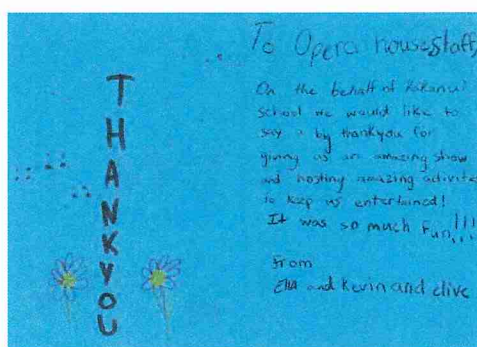 THANKYOU
To Opera house staff,
On the behalf of Kakanui
School we would like to
say a big thankyou for
giving us an amazing show
and hosting amazing activites
to keep us entertained!
It was so much fun!!!
From
Ella and Kevin and clive